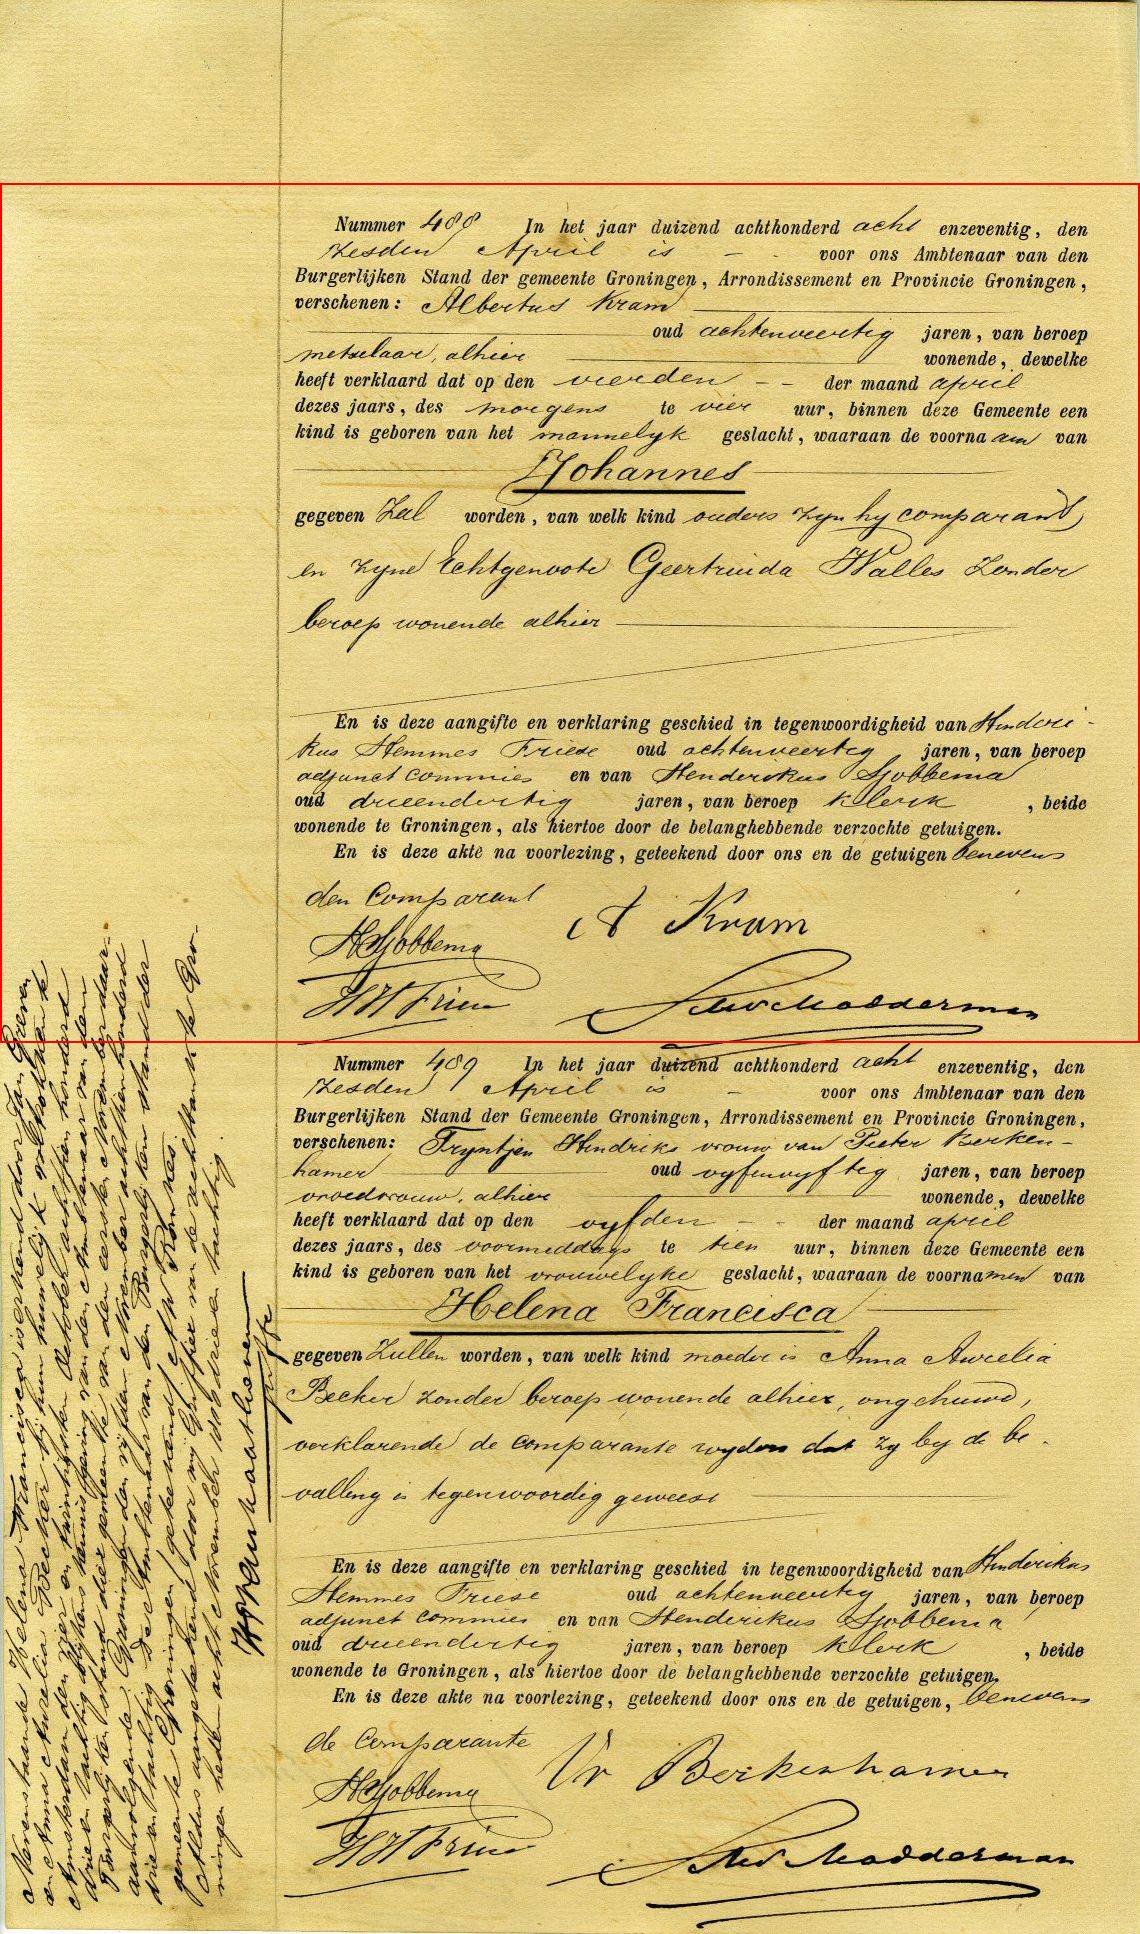 Nummer 488 In het jaar duizend achthonderd acht enzeventig, den
zesden April is - - voor ons Ambtenaar van den
Burgerlijken Stand der gemeente Groningen, Arrondissement en Provincie Groningen,
verschenen: Albertus Kram
oud achtenveertig jaren, van beroep
metselaar, alhier wonende, dewelke
heeft verklaard dat op den vierden - - der maand april
dezes jaars, des morgens te vier uur, binnen deze Gemeente een
kind is geboren van het mannelyk geslacht, waaraan de voornaam van
Johannes
gegeven zal worden, van welk kind ouders zyn hy comparant
en zyne Echtgenoote Geertruida Walles zonder
beroep wonende alhier
En is deze aangifte en verklaring geschied in tegenwoordigheid van Hinderi-
kus Hemmes Friese oud achtenveertig jaren, van beroep
adjunct commies en van Henderikus Sjobbema
oud drieendertig jaren, van beroep klerk , beide
wonende te Groningen, als hiertoe door de belanghebbende verzochte getuigen.
En is deze akte na voorlezing, geteekend door ons en de getuigen benevens
den Comparant
A Kram
HSjobbema
HH Friese
Modderman
Nummer 489 In het jaar duizend achthonderd acht enzeventig, den
zesden April is - voor ons Ambtenaar van den
Burgerlijken Stand der Gemeente Groningen, Arrondissement en Provincie Groningen,
verschenen: Tryntjen Hendriks vrouw van Pieter Berken-
hamer oud vyfenvyftig jaren, van beroep
vroedvrouw, alhier wonende, dewelke
heeft verklaard dat op den vyfden - - der maand april
dezes jaars, des voormiddags te tien uur, binnen deze Gemeente een
kind is geboren van het vrouwelyke geslacht, waaraan de voornamen van
Helena Francisca
gegeven zullen worden, van welk kind moeder is Anna Aurelia
Becker zonder beroep wonende alhier, ongehuwd,
verklarende de comparante wyders dat zy by de be-
valling is tegenwoordig geweest
En is deze aangifte en verklaring geschied in tegenwoordigheid van Hinderikus
Hemmes Friese oud achtenveertig jaren, van beroep
adjunct commies en van Henderikus Sjobbema
oud drieendertig jaren, van beroep klerk , beide
wonende te Groningen, als hiertoe door de belanghebbende verzochte getuigen.
En is deze akte na voorlezing, geteekend door ons en de getuigen, benevens
de Comparante
Vr Berkenhamer
HSjobbema
HH Friese
Modderman
Nevenstaande Helena Francisca is erkend door Jan Greven
en Anna Aurelia Becker bij hun huwelijk voltrokken te
Amsterdam den vier en twintigsten October achttien honderd
drie en tachtig blijkens kennisgeving van den Ambtenaar van den
Burgerlijken stand dier gemeente van den eersten November daar-
aanvolgende. Groningen den vijfden November achttien honderd
drie en tachtig De Ambtenaar van den Burgerlijken stand der
gemeente Groningen (geteekend)
Aldus aangeteekend door mij Griffier van de rechtbank te Gro-
ningen heden acht November 1800 drie en tachtig.